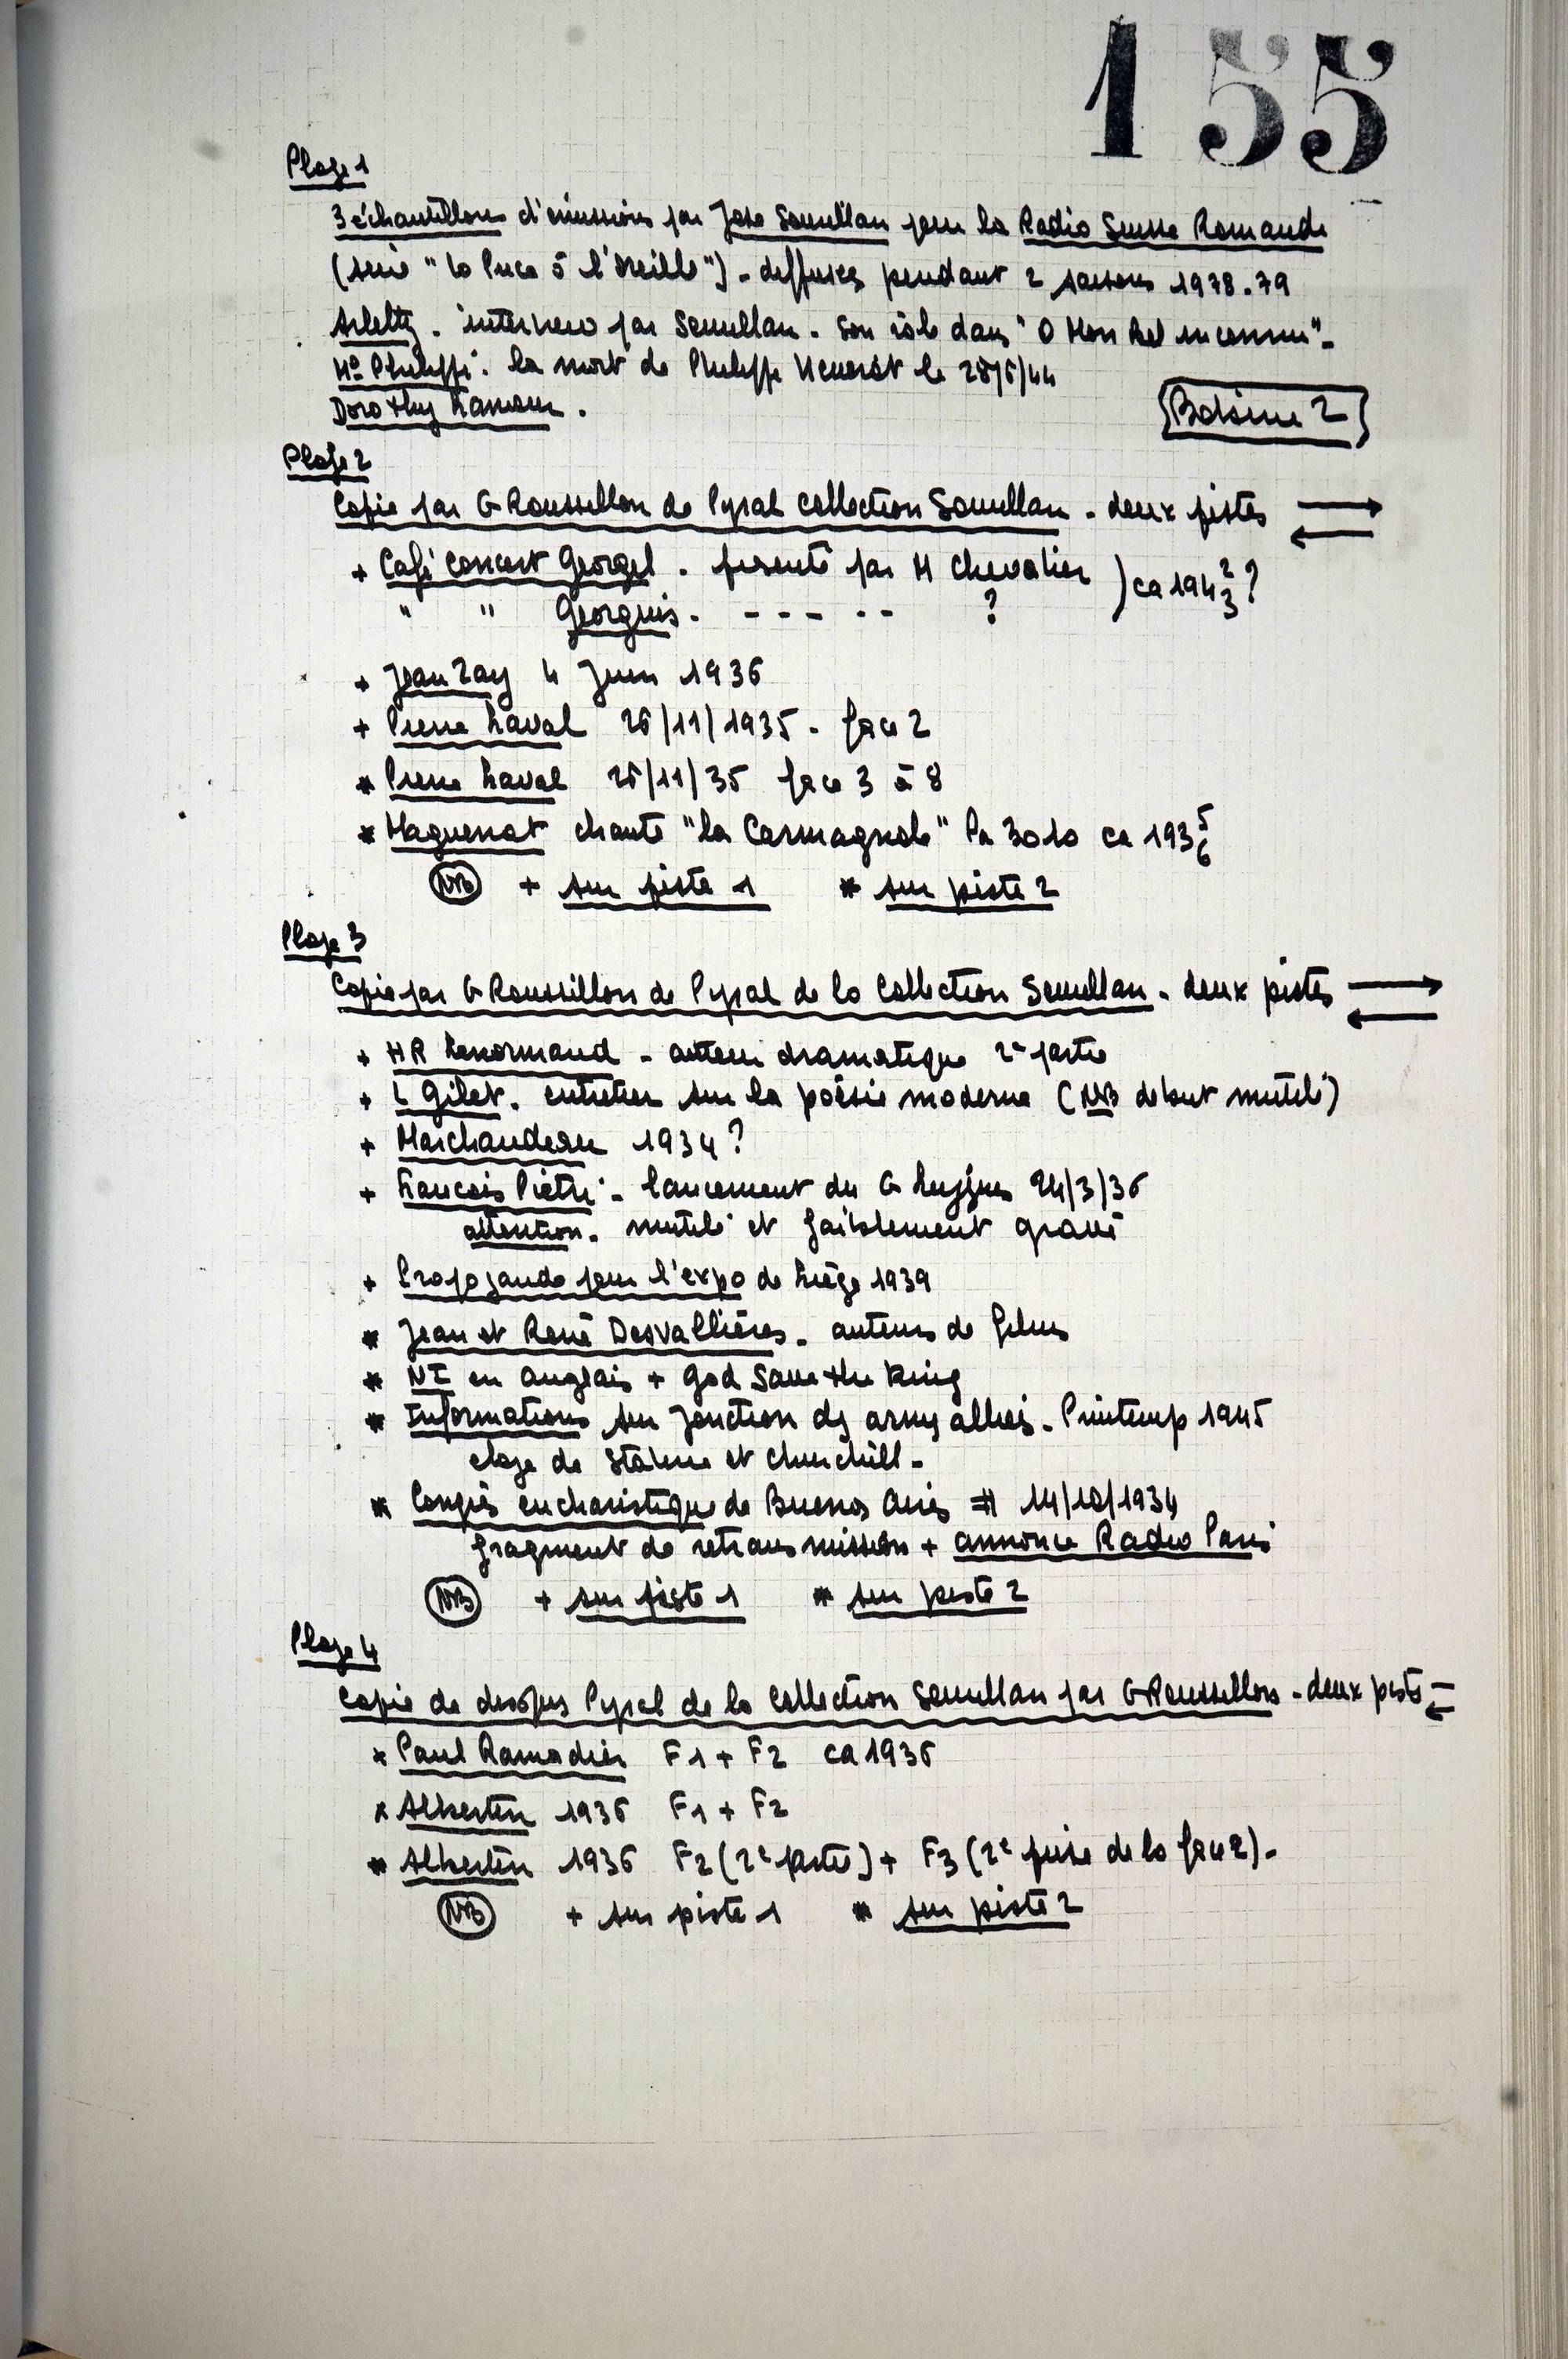 155
Plage 1
3 échantillons d'émissions par Jose Sourillan pour la Radio Suisse Romande
(série "la Puce à l'Oreille") - diffusées pendant 2 saisons 1978.79
Arletty - interview par Sourillan - Son rôle dans "O Mon bel inconnu" -
Me Philippe: la mort de Philippe Henriot le 28/6/44
Dorothy Lamour.
Bobine 2
Plage 2
Copie par G Roussillon de Pyral collection Sourillan - deux pistes → ←
+ Café concert Georgel. présenté par M Chevalier ) ca 194 2/3 ?
" " Georguis. - - - - - ?
+ Jean Zay 4 Juin 1936
+ Pierre Laval 26/11/1935 - face 2
* Pierre Laval 26/11/35 face 3 à 8
* Haguenat chante "la Carmagnole" Pa 3010 ca 193 5/6
NB + sur piste 1 * sur piste 2
Plage 3
Copie par G Roussillon de Pyral de la Collection Sourillan - deux pistes → ←
+ HR Lenormand - auteur dramatique 2e partie
+ L Gilet. entretien sur la poésie moderne (NB début mutilé)
+ Marchandeau 1934?
+ Francois Piétri - lancement du G Leygues 24/3/36
attention. mutilé et faiblement gravé
+ Propagande pour l'expo de Liège 1939
* Jean et René Desvallières - auteurs de films
* NI en anglais + God Save the King
* Informations sur jonction des armes alliés - Printemp 1945
eloge de Staline et Churchill -
* Congrès eucharistique de Buenos Aires 14/10/1934
fragment de retransmission + annonce Radio Paris
NB + sur piste 1 * sur piste 2
Plage 4
Copie de disques Pyral de la Collection Sourillan par G Roussillon - deux pistes ←
* Paul Ramadier F1 + F2 ca 1936
x Albertin 1936 F1 + F2
* Albertin 1936 F2 (2e partie) + F3 (2e prise de la face 2) -
NB + sur piste 1 * sur piste 2